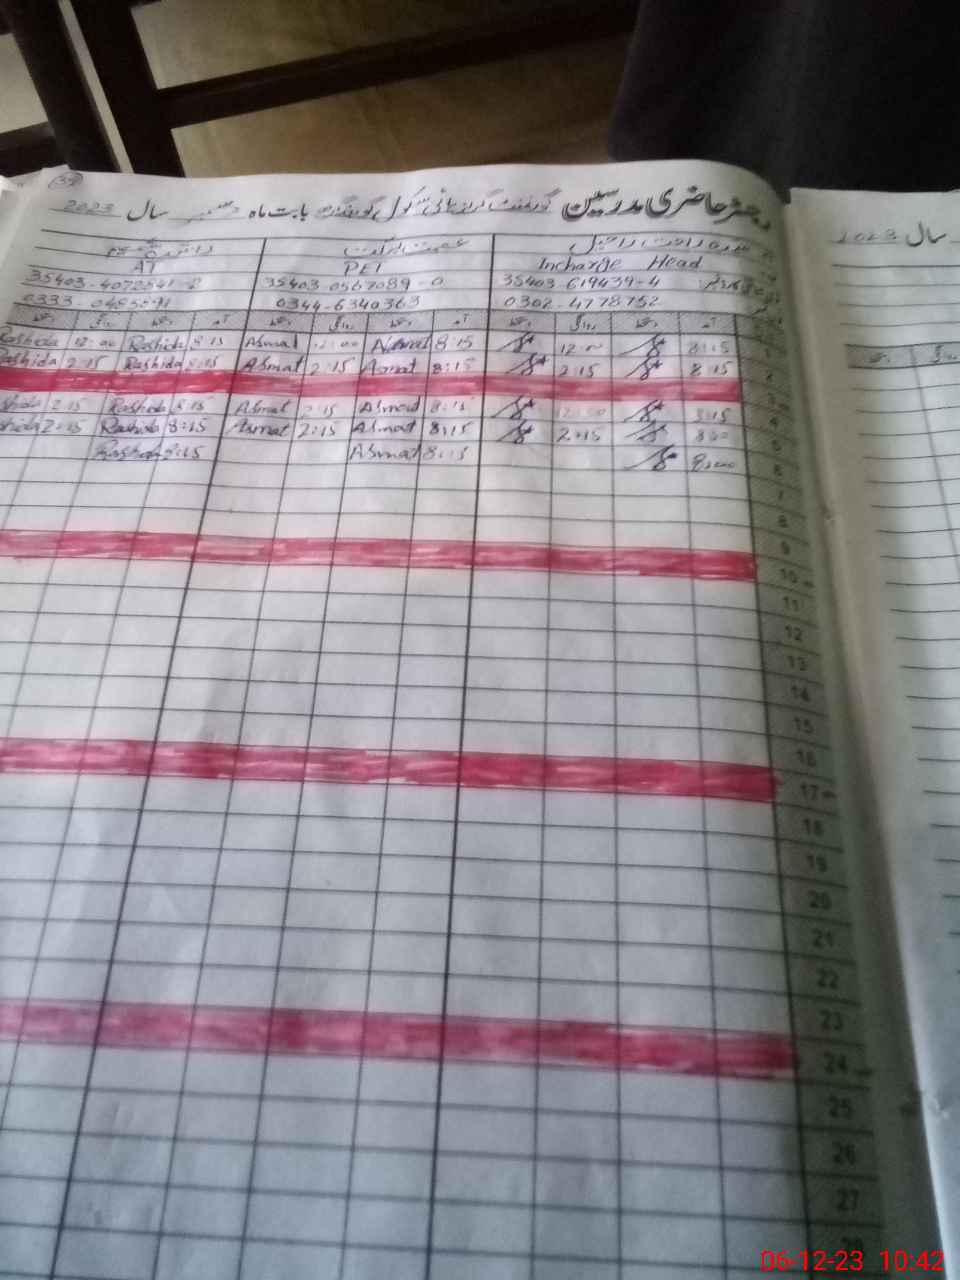 39
رجسٹر حاضری مدرسین گورنمنٹ گرلز ہائی سکول بابت ماہ دسمبر سال 2023
سال 2023
Incharge Head PET AT
35403-619439-4 35403-0567089-0
0302-4778752 0344-6340363 0333
آمد دستخط روانگی دستخط آمد دستخط روانگی دستخط آمد دستخط روانگی دستخط
1 8:15 12:00 8:15 Asmat 12:00 Asmat 8:15 Rashida 12:00 Rashida
2 8:15 2:15 8:15 Asmat 2:15 Asmat 8:15 Rashida 2:15 Rashida
3
4 8:15 8:15 Asmat 2:15 Asmat 8:15 Rashida 2:15
5 2:15 8:15 Asmat 2:15 Asmat 8:15 Rashida 2:15
6 8:15 Asmat 8:15 Rashida
7
8
9
10
11
12
13
14
15
16
17
18
19
20
21
22
23
24
25
26
27
28
06-12-23 10:42